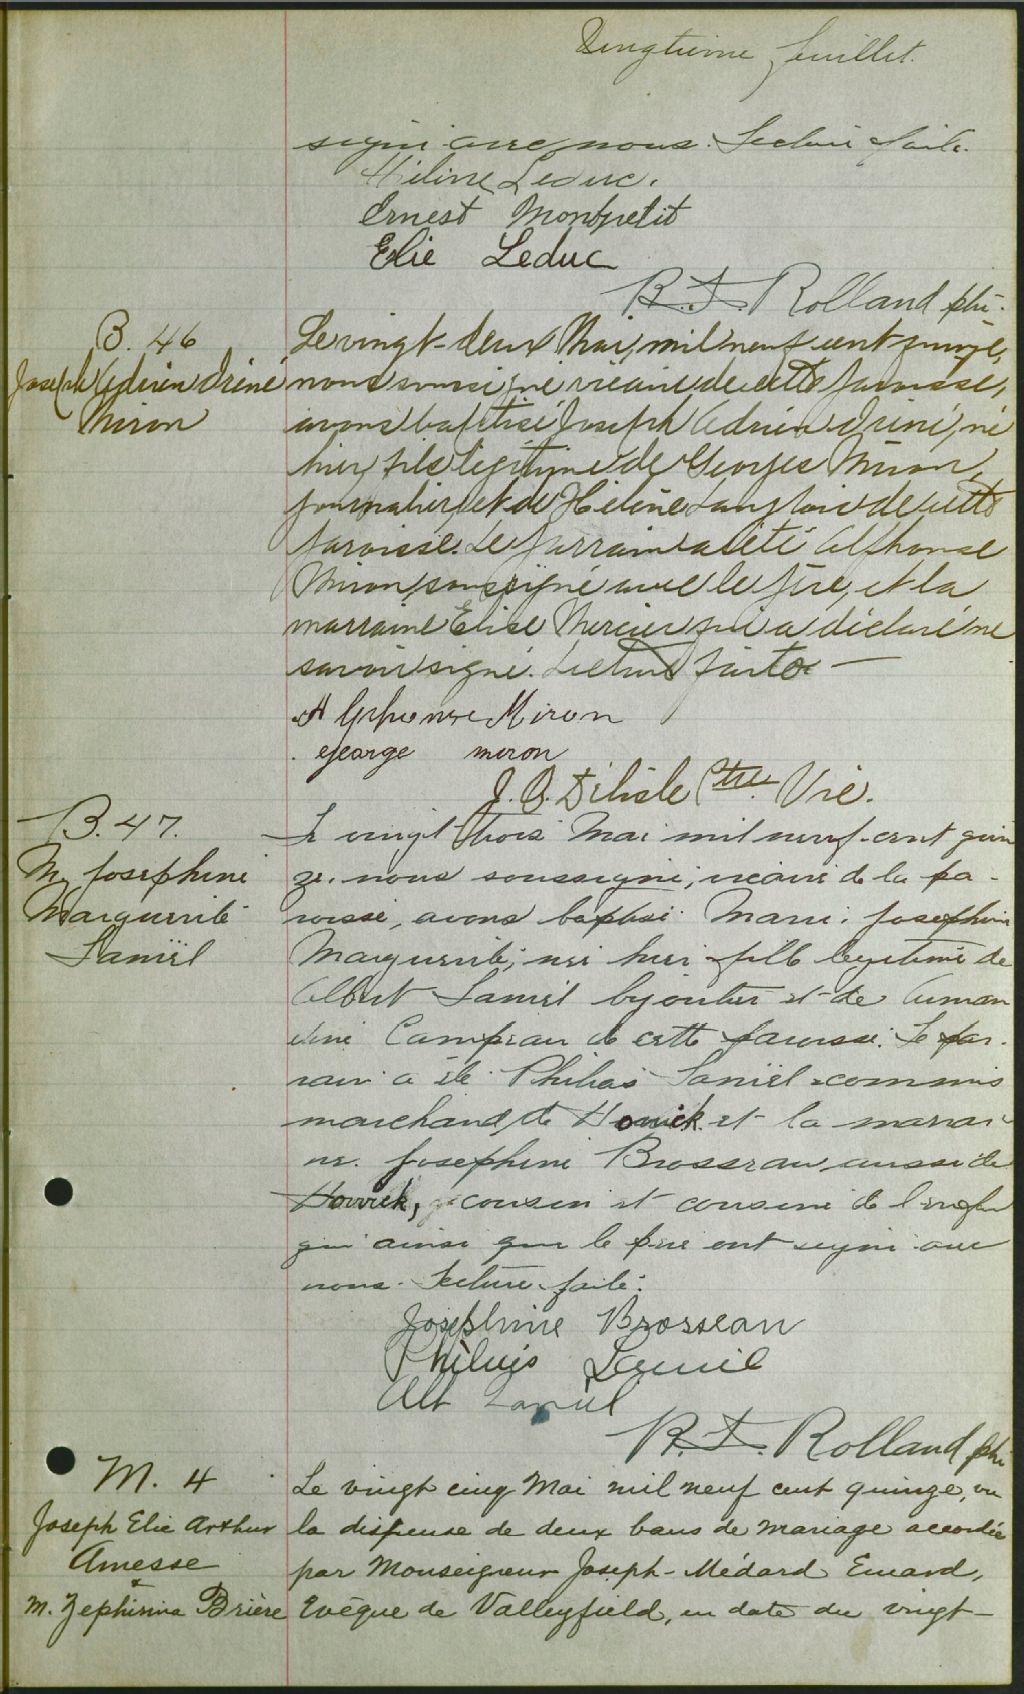 Vingtième feuillet.
signé avec nous. Lecture faite.
Hélène Leduc.
Ernest Montpetit
Elie Leduc
R. F. Rolland ptre
B. 46
Joseph Adrien Iréné
Miron
Le vingt-deux Mai, mil neuf cent quinze,
nous soussigné vicaire de cette paroisse,
avons baptisé Joseph Adrien Iréné, né
hier, fils légitime de Georges Miron,
journalier, et de Hélène Langlois de cette
paroisse. Le parrain a été Alphonse
Miron, soussigné avec le père, et la
marraine Elise Mercier qui a déclaré ne
savoir signé. Lecture faite
Alphonse Miron
George miron
J. O. Delisle Ptre Vic.
B. 47.
M. Josephine
Marguerite
Laniël
Le vingt trois Mai mil neuf-cent quin
ze. nous soussigné, vicaire de la pa-
roisse, avons baptisé Marie. Josephine
Marguerite, née hier fille légitime de
Albert Laniël bijoutier et de Aman
dine Campeau de cette paroisse. Le par-
rain a été Philias Laniël commis
marchand, de Howick et la marrai
ne. Josephine Brosseau, aussi de
Howick, cousin et cousine de l'enfan
qui ainsi que le père ont signé avec
nous. Lecture faite.
Josephine Brosseau
Philias Laniël
Alb Laniël
R. F. Rolland ptre
M. 4
Joseph Elie Arthur
Amesse
&
M. Zephirina Brière
Le vingt cinq Mai mil neuf cent quinze, vu
la dispense de deux bans de mariage accordée
par Monseigneur Joseph-Médard Emard,
Evêque de Valleyfield, en date du vingt-